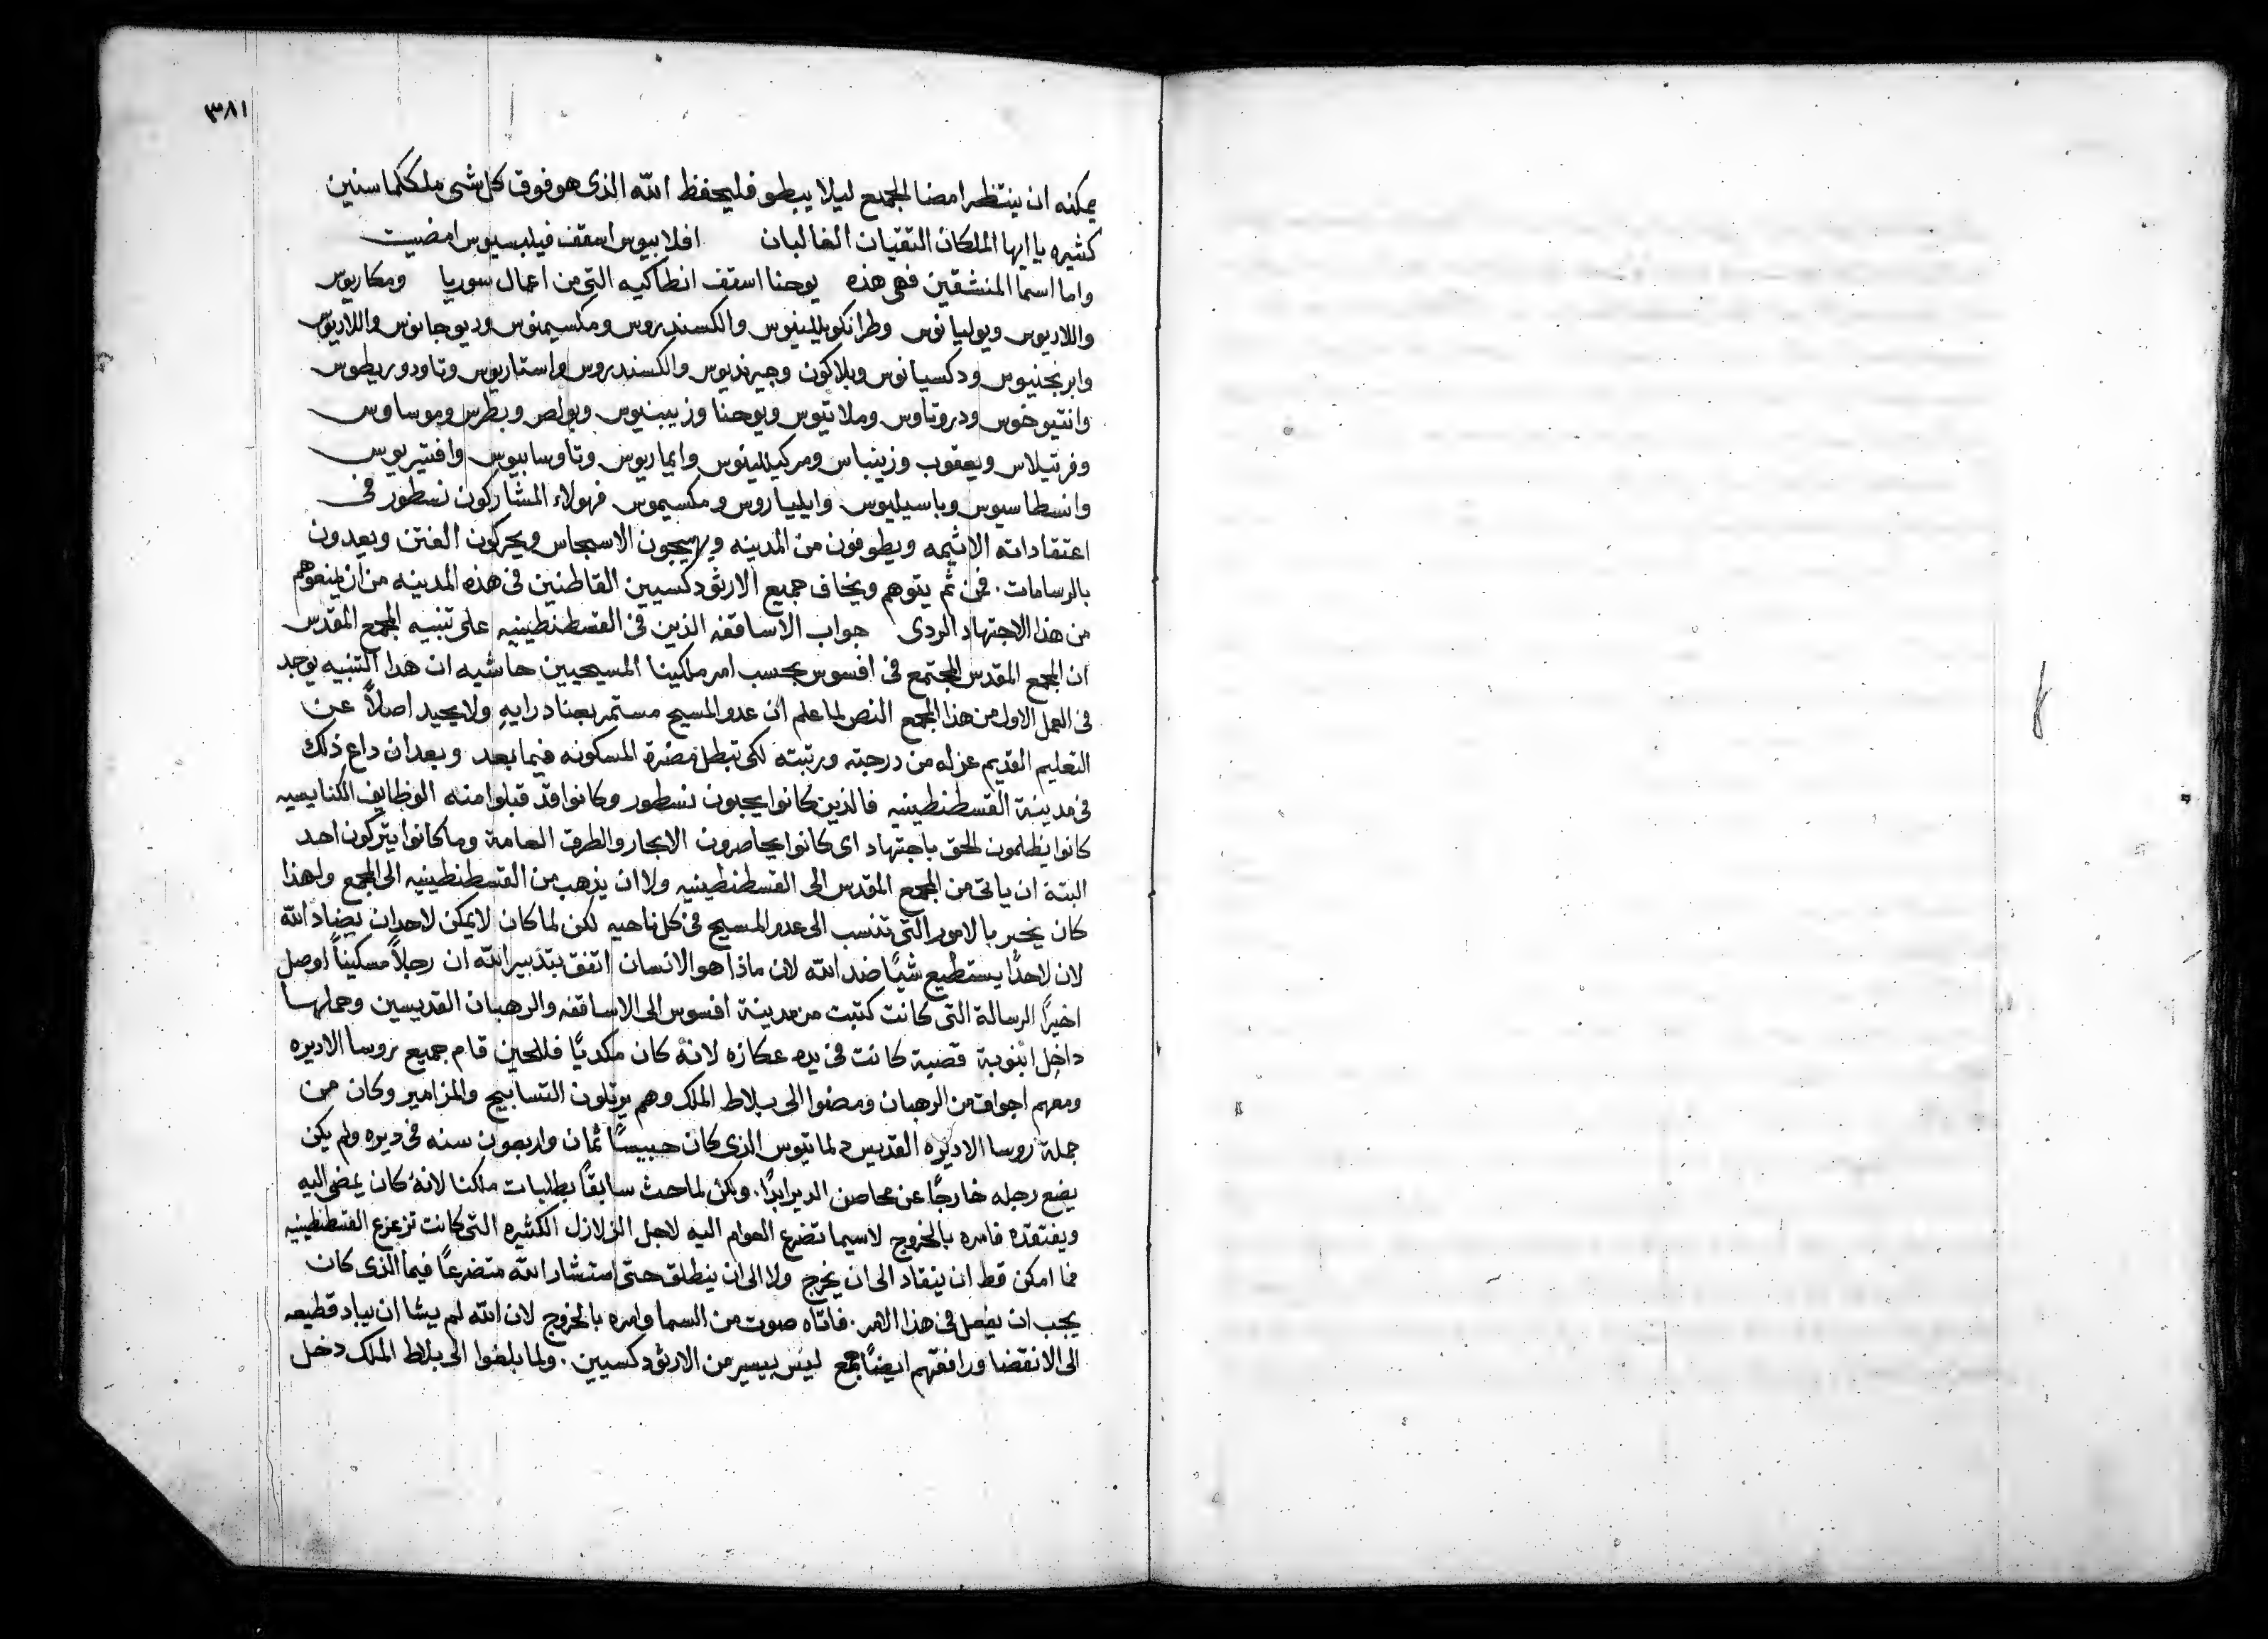 ٣٨١
يمكنه ان ينتظر امضا المجمع ليلا يبطو فليحفظ الله الذى هو فوق كل شى ملككما سنين
كثيره يا ايها الملكان التقيان الغالبان افلابيوس اسقف فيلبسيوس امضيت
واما اسما المنشقين فهى هذه يوحنا اسقف انطاكيه التى من اعمال سوريا ومكاريوس
واللاريوس ويوليانوس وطرانكويللينوس والكسندروس ومكسيمنوس وديوجانوس واللاديوس
وابريجنيوس ودكسيانوس وبلاكون وجيرنديوس والكسندروس واستاريوس وتاودوريطوس
وانتيوخوس ودروتاوس وملاتيوس ويوحنا وزيبنيوس وبولص وبطرس وموساوس
وفرتيلاس ويعقوب وزينباس ومركيللينوس وايماريوس وتاوسابيوس وافتيريوس
وانسطاسيوس وباسيليوس وايليباروس ومكسيموس فهولاء المشاركون نسطور فى
اعتقاداته الاثيمه ويطوفون من المدينه ويهيجون الاسبجاس ويحركون الفتن ويعدون
بالرسامات. فمن ثم يتوهم ويخاف جميع الارثودكسيين القاطنين فى هذه المدينه من ان يمنعوهم
من هذا الاجتهاد الردى جواب الاساقفه الذين فى القسطنطينيه على تنبيه المجمع المقدس
ان المجمع المقدس المجتمع فى افسوس بحسب امر ملكينا المسيحيين حاشيه ان هدا التنبيه يوجد
فى العمل الاول من هذا المجمع النص لما علم ان عدو المسيح مستمر بعناد رايهِ ولا يحيد اصلاً عن
التعليم القديم عزله من درجته ورتبته لكى تبطل مضرة المسكونه فيما بعد وبعد ان داع ذلك
فى مدينة القسطنطينيه فالذين كانوا يحبون نسطور وكانوا قد قبلوا منه الوظايف الكنايسيه
كانوا يظلمون الحق باجتهاد اى كانوا يحاصرون الابحار والطرق العامة وما كانوا يتركون احد
البتة ان ياتى من المجمع المقدس الى القسطنطينيه ولا ان يذهب من القسطنطينيه الى المجمع ولهذا
كان يخبر بالامور التى تنسب الى عدو المسيح فى كل ناحيه لكن لما كان لا يمكن لاحد ان يضاد الله
لان لاحداً يستطيع شياً ضد الله لان ماذا هو الانسان اتفق بتدبير الله ان رجلاً مسكيناً اوصل
اخيراً الرسالة التى كانت كتبت من مدينة افسوس الى الاساقفه والرهبان القديسين وحملها
داخل انبوبة قصبة كانت فى يده عكازه لانهُ كان مكدياً فللحين قام جميع روسا الاديره
ومعهم اجواق من الرهبان ومضوا الى بلاط الملك وهم يرتلون التسابيح والمزامير وكان من
جملة روسا الاديره القديس دلماتيوس الذى كان حبيساً ثمان واربعون سنه فى ديره ولم يكن
يضع رجله خارجاً عن محاصن الدير ابداً. ولكن لما حث سابقاً بطلبات ملكنا لانهُ كان يمضى اليه
ويفتقده فامره بالخروج لاسيما تضرع العوام اليه لاجل الزلازل الكثيره التى كانت تزعزع القسطنطينيه
فما امكن قط ان ينقاد الى ان يخرج ولا الى ان ينطلق حتى استشار الله متضرعاً فيما الذى كان
يجب ان يفعل فى هذا الامر. فاتاه صوت من السما وامره بالخروج لان الله لم يشا ان يباد قطيعه
الى الانقضا ورافقهم ايضاً جمع ليس بيسير من الارثودكسيين. ولما بلغوا الى بلاط الملك دخل